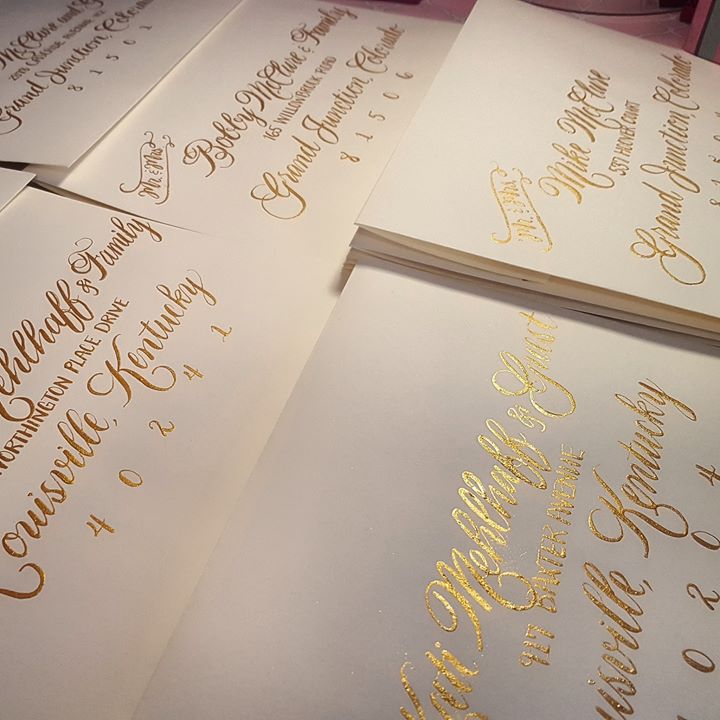 McClave and
Grand Junction, Colorado
8 1 5 0 1
Mr. & Mrs.
Bobby McClave & Family
165 WILLOWBROOK ROAD
Grand Junction, Colorado
8 1 5 0 6
Mr. & Mrs.
Mike McClave
Grand Junction, Colorado
ehlhaff & Family
WORTHINGTON PLACE DRIVE
Louisville, Kentucky
4 0 2 4 1
Kati Mehlhaff & Guest
917 BAXTER AVENUE
uisville, Kentucky
0 2 0 4